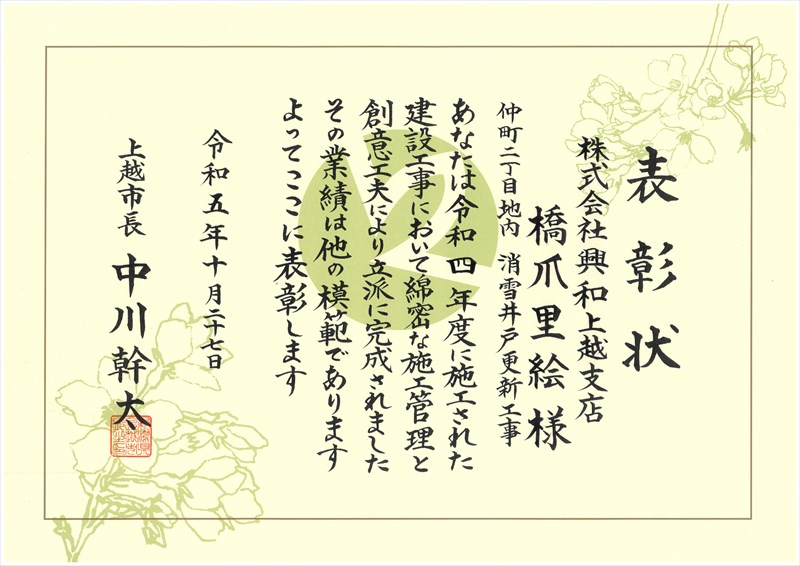 表彰状
株式会社興和上越支店
橋爪里絵様
仲町二丁目地内 消雪井戸更新工事
あなたは令和四年度に施工された
建設工事において綿密な施工管理と
創意工夫により立派に完成されました
その業績は他の模範であります
よってここに表彰します
令和五年十月二十七日
上越市長 中川幹太